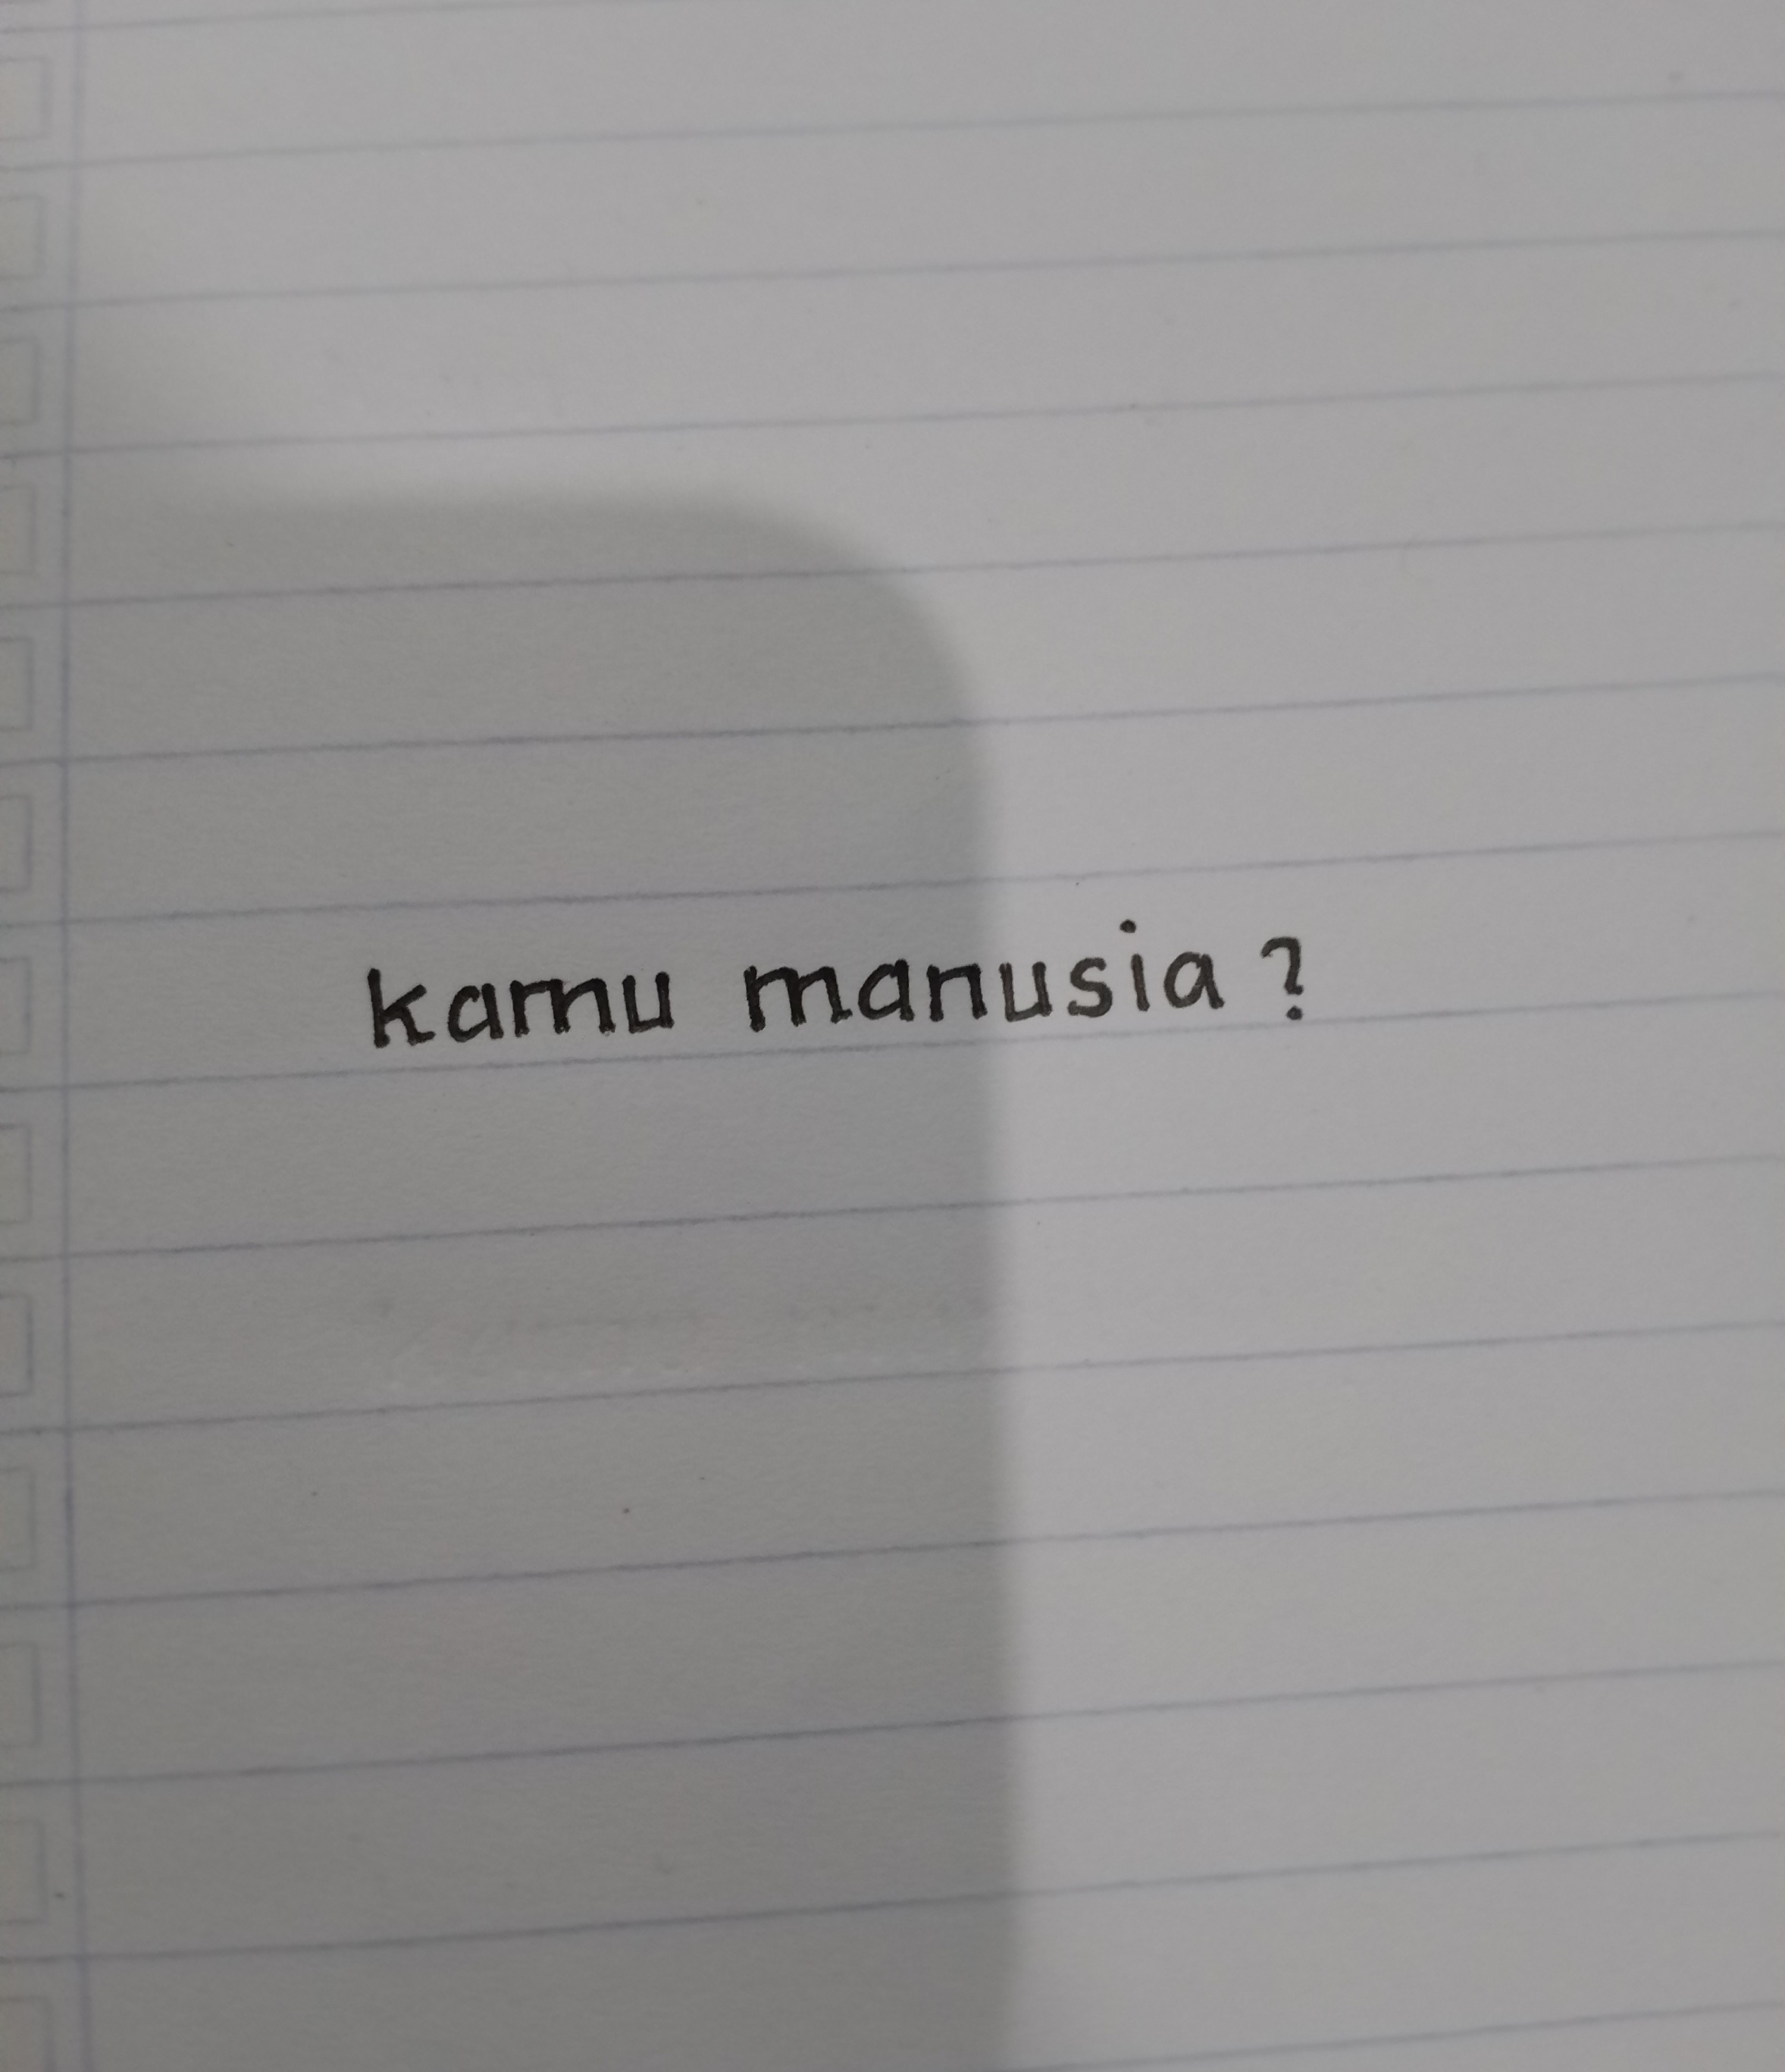 kamu manusia ?